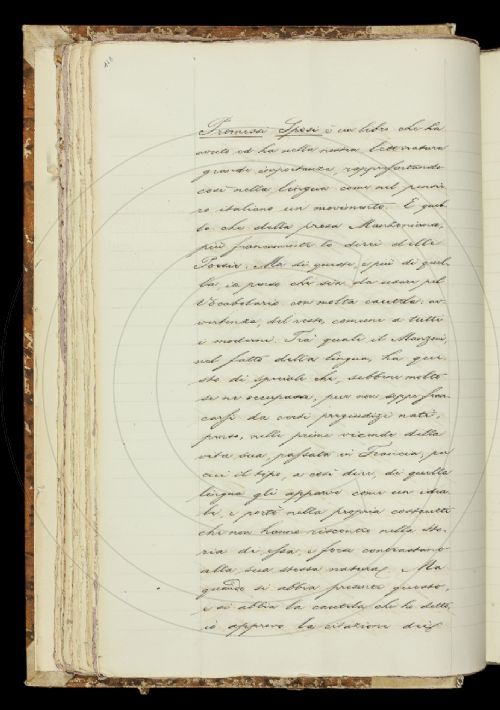 118
Promessi Sposi è un libro che ha
avuto ed ha nella nostra letteratura
grande importanza, rappresentando
così nella lingua come nel pensie-
ro italiano un movimento. E quel-
lo che della prosa Manzoniana,
più francamente lo direi delle
Poesie. Ma di queste, e più di quel-
la, io penso che sia da usare pel
Vocabolario con molta cautela: av-
vertenza, del resto, comune a tutti
i moderni. Tra' quali il Manzoni,
nel fatto della lingua, ha que-
sto di speciale che, sebbene molto
se ne occupasse, pur non seppe fran-
carsi da certi pregiudizi nati,
penso, nelle prime vicende della
vita sua, passata in Francia, per
cui il tipo, a così dire, di quella
lingua gli apparve come un idea-
le, e portò nella propria costrutti
che non hanno riscontro nella sto-
ria di essa, e forse contrastano
alla sua stessa natura. Ma
quando si abbia presente questo,
e si abbia la cautela che ho detto,
io approvo la citazione dei